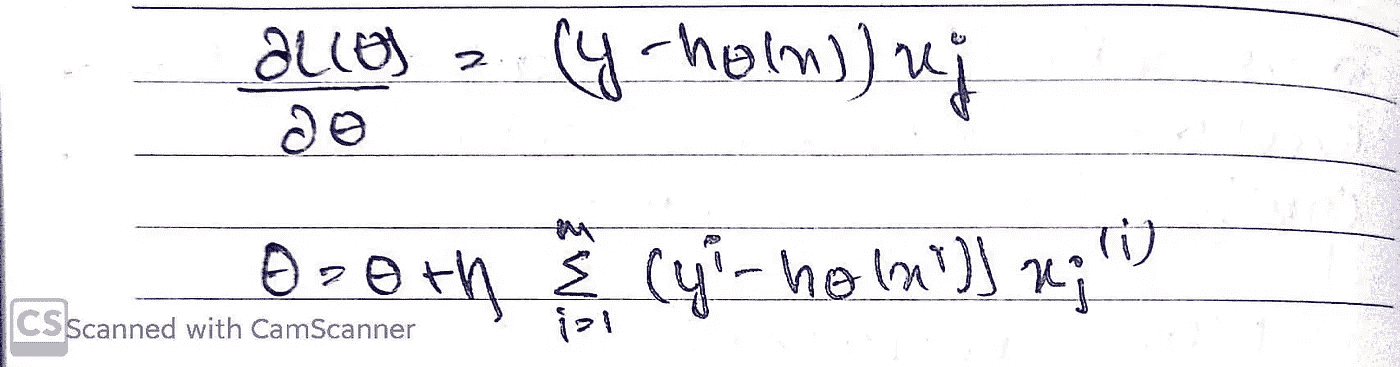 ∂L(θ)/∂θ = (y - hθ(x)) xj
θ = θ + η Σ_{i=1}^{m} (y^i - hθ(x^i)) xj^(i)
CS Scanned with CamScanner